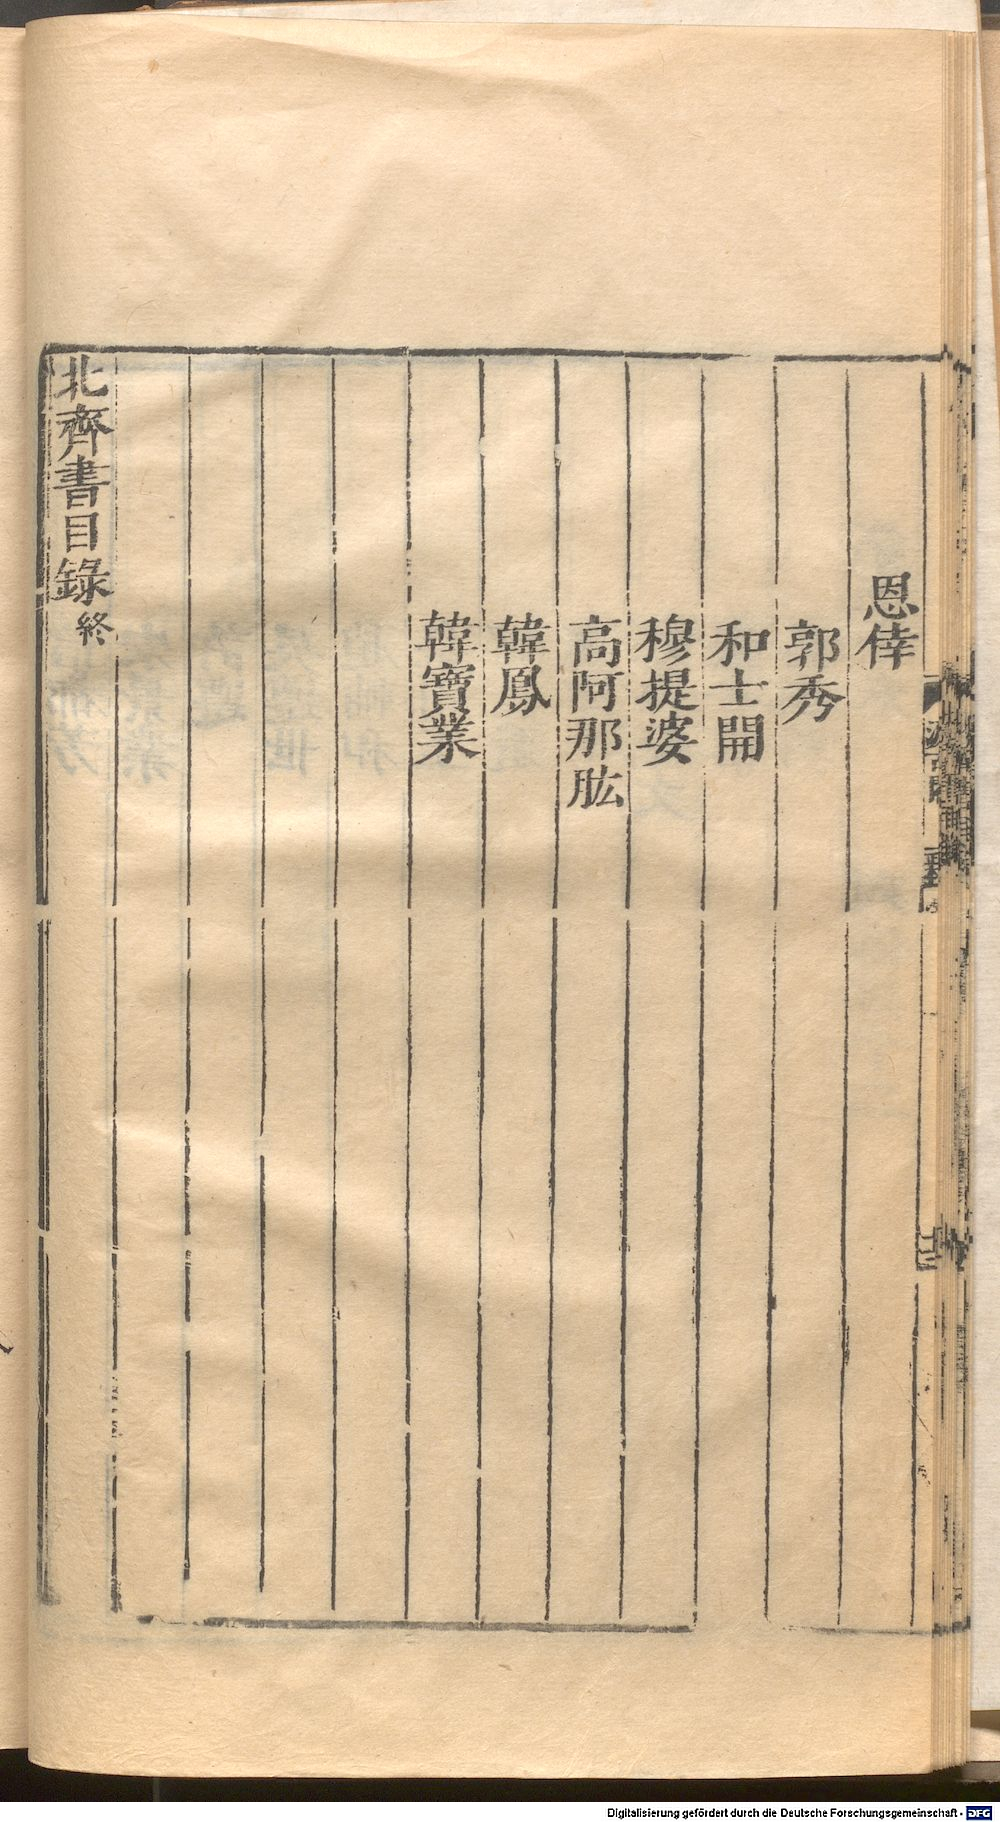 恩倖
郭秀
和士開
穆提婆
高阿那肱
韓鳳
韓寶業
北齊書目錄終
Digitalisierung gefördert durch die Deutsche Forschungsgemeinschaft - DFG